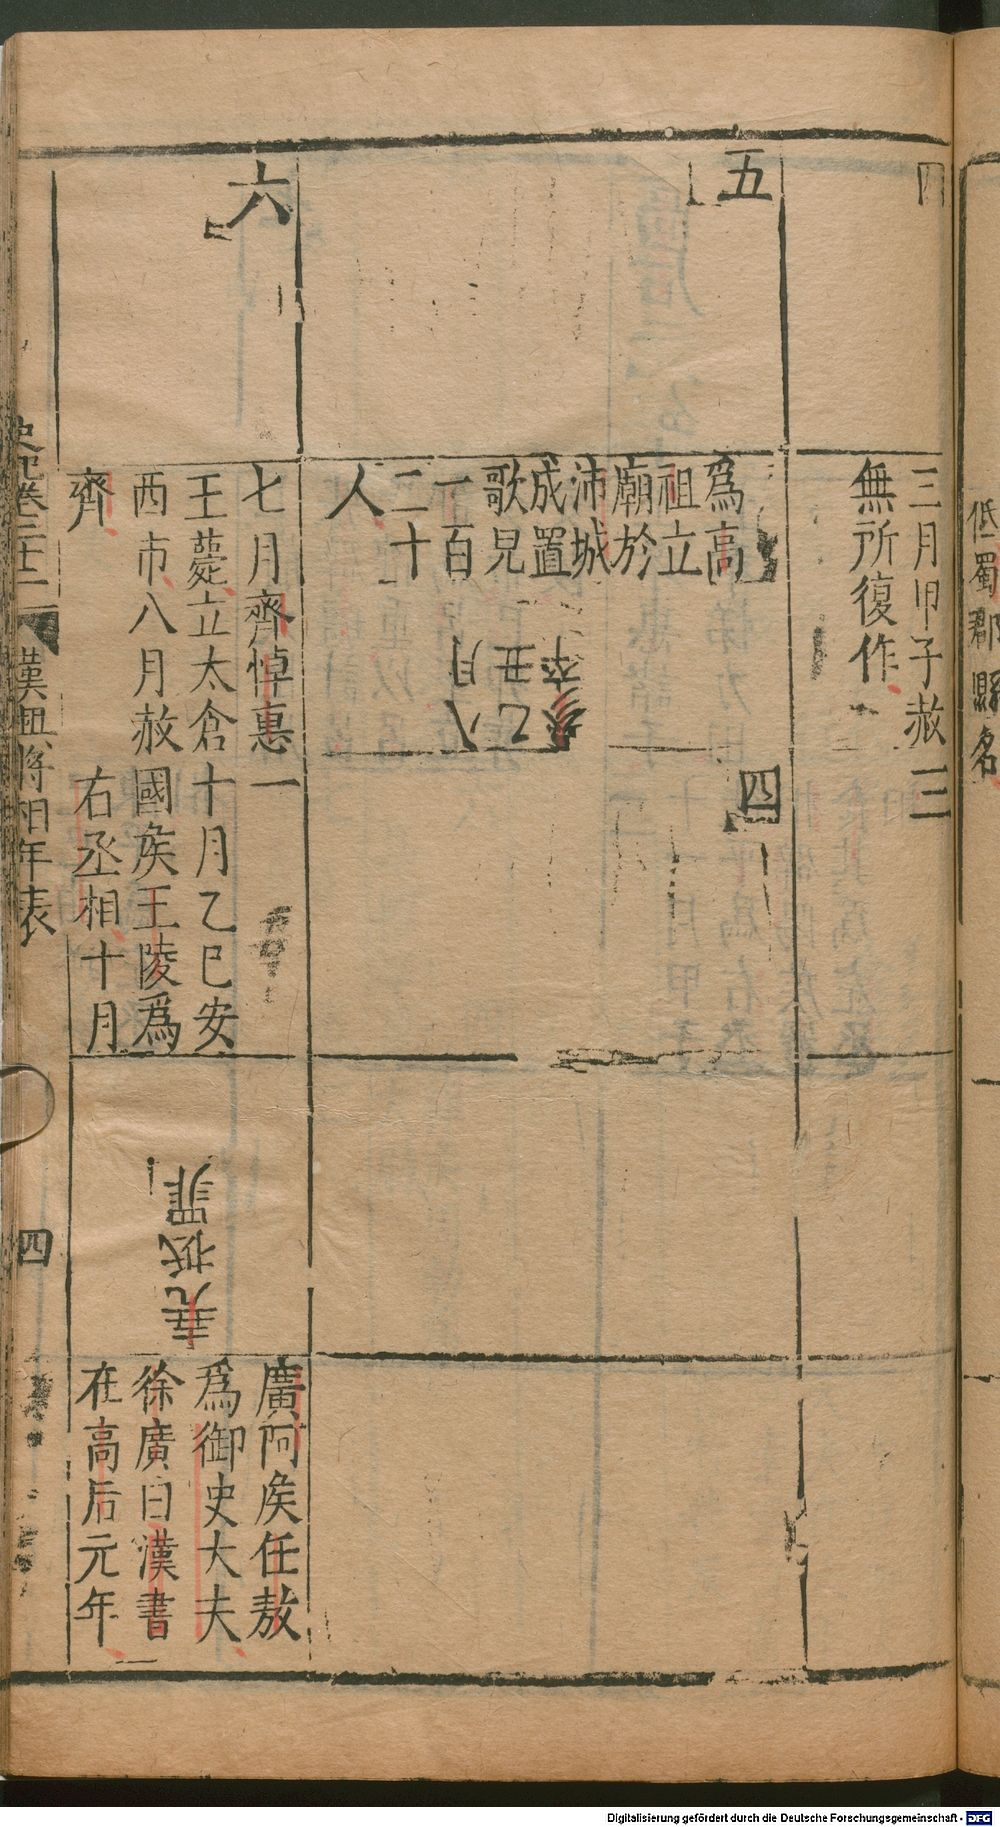 低蜀郡縣名
四
三月甲子赦
無所復作
三
五
爲高
祖立
廟於
沛城
成置
歌兒
一百
二十
人
乙丑
八月
卒
四
六
七月齊悼惠
王薨立太倉
西市八月赦
齊
一
十月乙巳安
國侯王陵爲
右丞相十月
堯抵罪
廣阿侯任敖
爲御史大夫
徐廣曰漢書
在高后元年
史記卷二十二
漢興將相年表
四
Digitalisierung gefördert durch die Deutsche Forschungsgemeinschaft - DFG